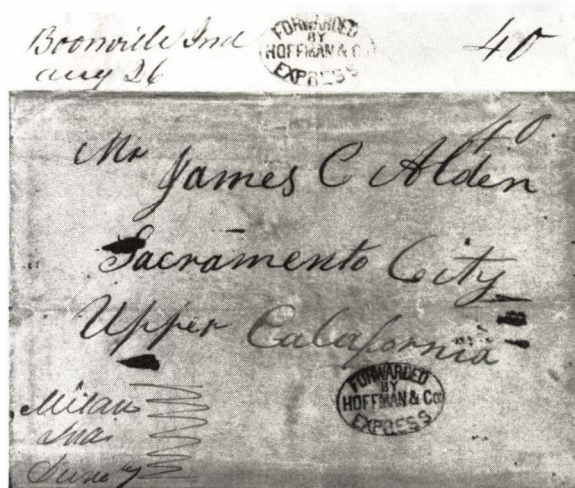 Boonville Ind
aug 26
FORWARDED
BY
HOFFMAN & Co
EXPRESS
40
40.
Mr James C Alden
Sacramento City
Upper Calafornia
FORWARDED
BY
HOFFMAN & Co
EXPRESS
Milan
Ina